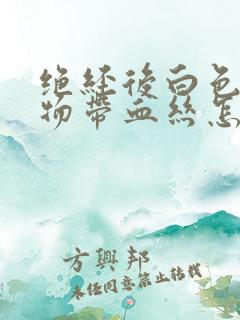 绝经后白色
物带血丝怎
方興邦
未经同意禁止转载